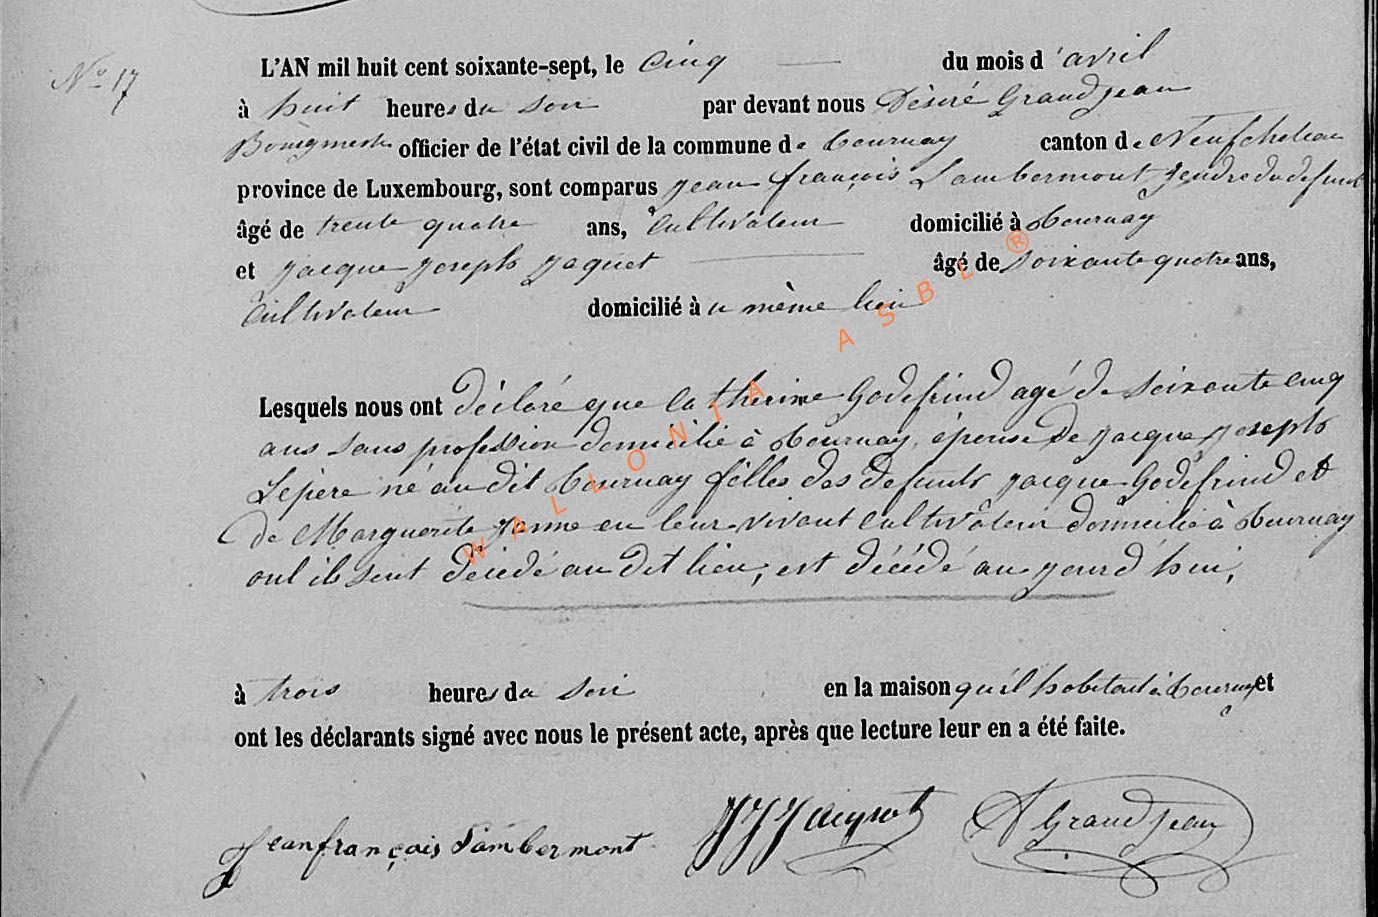 N° 17
L'AN mil huit cent soixante-sept, le cinq du mois d'avril
à huit heures du soir par devant nous Désiré Grandjean
Bourgmestre officier de l'état civil de la commune de tournay canton de Neufchateau
province de Luxembourg, sont comparus jean françois Lambermont gendre du defunt
âgé de trente quatre ans, Cultivateur domicilié à tournay
et jacque joseph jaquet âgé de soixante quatre ans,
Cultivateur domicilié à u même lieu
Lesquels nous ont déclaré que catherine Godefrind agé de soixante cinq
ans sans profession domicilié à tournay, épouse de jacque joseph
Lépère né au dit tournay filles des defunts jacque Godefrind et
de Marguerite en leur vivant cultivateur domicilié à tournay
oul ils sont décédé au dit lieu, est décédé au jourd'hui,
à trois heures du soir en la maison qu'il habitait à tournay et
ont les déclarants signé avec nous le présent acte, après que lecture leur en a été faite.
Jean françois Lambermont JJ Jacquet D Grandjean
WALLONIA ASBL ®